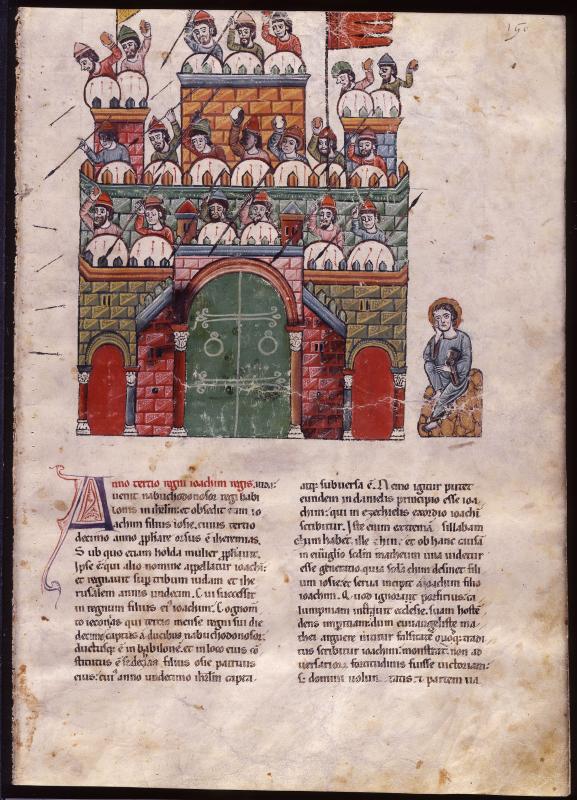 Anno tertio regni ioachim regis iuda
uenit nabuchodonosor rex babi
lonis in ihrlm: et obsedit eam io
achim filius iosie, cuius tertio
decimo anno pphare orsus ē iheremias,
Sub quo etiam holda mulier pphauit.
Ipse ē qui alio nomine appellatur
et regnauit sup tribum iudam et ihe
rusalem annis undecim. Cui successit
in regnum filius ei' ioachim:
to ieconias qui tertio mense regni sui die
decimo captus a ducibus nabuchodonosor
ductusq: ē in babilonē. et in loco eius cō
stitutus ē sedechias filius iosie patruus
eius. cui' anno undecimo ihrlm capta
atq: subuersa ē. Nemo igitur putet
eundem in danielis principio esse ioa
chim: qui in ezechielis exordio ioachī
scribitur. Iste enim extremā sillabam
chim habet. ille chin: et ob hanc causā
in euuglio scdm matheum una uidetur
esse generatio. quia scda chim desinet fili
um iosie: et incipit a ioachim filio
ioachim. Quod ignorans porfirius ca
lumpniam instruit ecclesie. suam hostē
dens imperitiam dum euuangeliste ma
thei arguere nititur falsitatē tradi
tus scribitur ioachim: monstrat non ad
uersariorum fortitudinis fuisse uictoriam:
s: domini uoluntatis. 7 partem ua